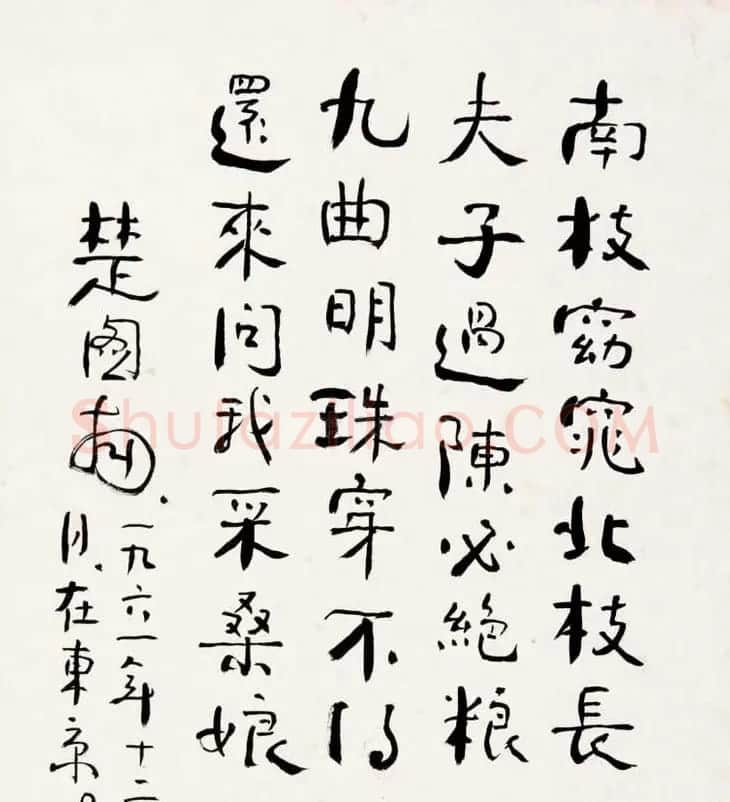 南枝窈窕北枝長
夫子過陳必絕粮
九曲明珠穿不得
還來问我采桑娘
楚图南
一九六一年十二
月在東京
Shufaziliao.COM